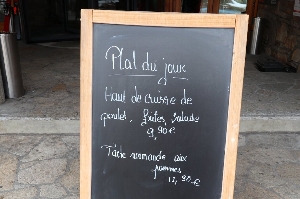 Plat du jour
Haut de cuisse de
poulet, frites, salade
9,90€
normande aux
pommes
12,90€